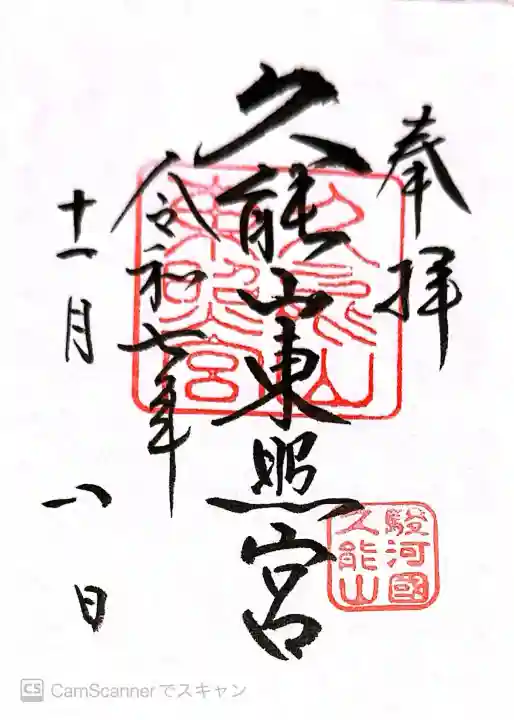 奉拝
久能山東照宮
令和七年
十一月
八日
久能山
東照宮
駿河國
久能山
CS CamScannerでスキャン